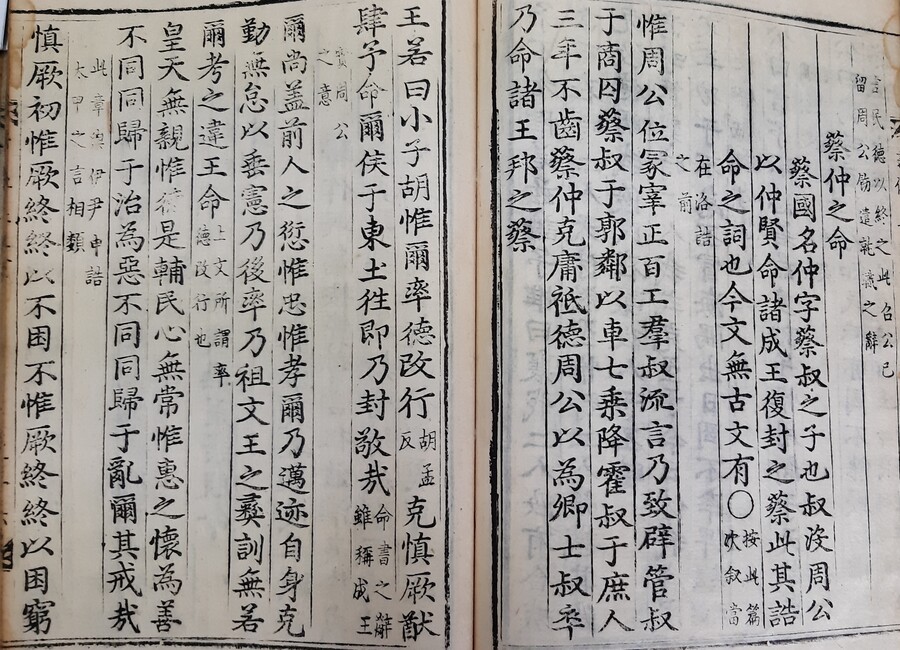 言民德以終之此召公已
留周公飭遣就職之辭
蔡仲之命
蔡國名仲字蔡叔之子也叔没周公
以仲賢命諸成王復封之蔡此其誥
命之詞也今文無古文有○按此篇次叙當
在洛誥之前
惟周公位冡宰正百工羣叔流言乃致辟管叔
于商囚蔡叔于郭鄰以車七乘降霍叔于庶人
三年不齒蔡仲克庸祗德周公以為卿士叔卒
乃命諸王邦之蔡
王若曰小子胡惟爾率德改行胡孟反克慎厥猷
肆予命爾侯于東土徃即乃封敬哉命書之辭雖稱成王
實周公之意
爾尚盖前人之愆惟忠惟孝爾乃邁迹自身克
勤無怠以垂憲乃後率乃祖文王之彞訓無若
爾考之違王命上文所謂率德改行也
皇天無親惟德是輔民心無常惟惠之懷為善
不同同歸于治為惡不同同歸于亂爾其戒哉
此章與伊尹申誥太甲之言相類
慎厥初惟厥終終以不困不惟厥終終以困窮